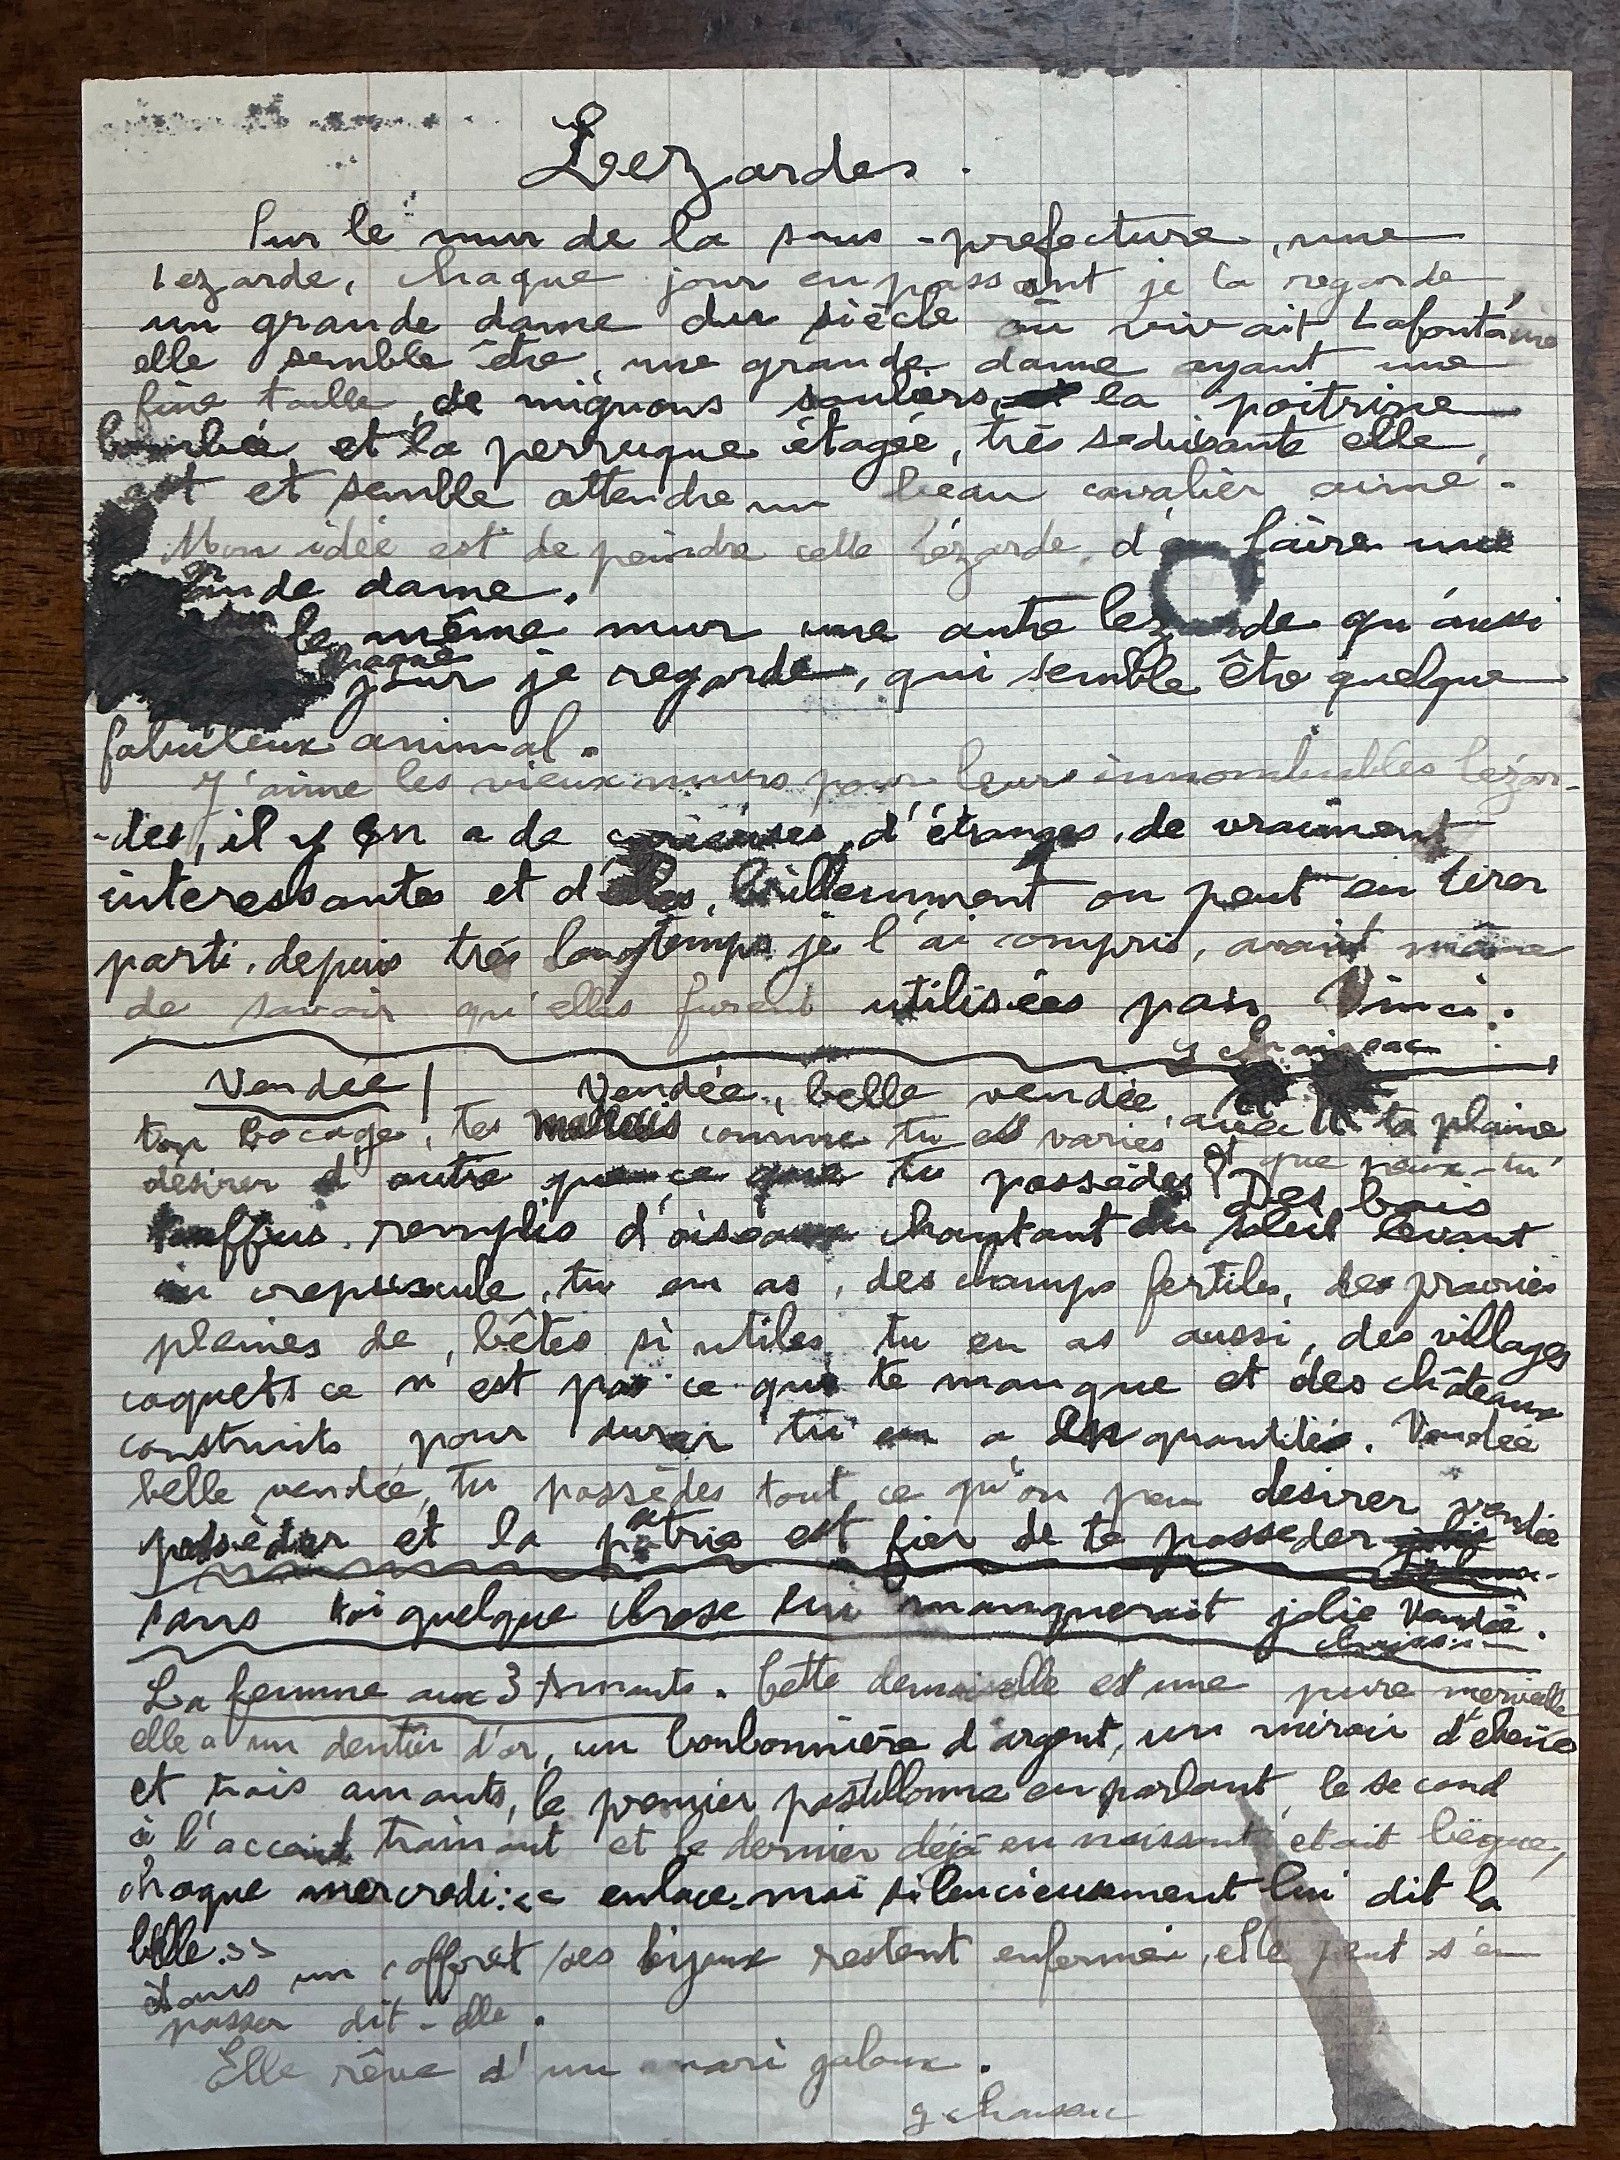 Leezardes.
Sur le mur de la sous-prefecture, une
lezarde, chaque jour en passant je la regarde,
un grande dame du siècle où vivait Lafontaine
elle semble être, une grande dame ayant une
fine taille, de mignons souliers, la poitrine
bombée et la perruque étagée, très seduisante elle
est et semble attendre un beau cavalier aimé.
Mon idée est de peindre cette lézarde, d'en faire une
grande dame.
Sur le même mur une autre lezarde qu'aussi
chaque jour je regarde, qui semble être quelque
fabuleux animal.
J'aime les vieux murs pour leurs innombrables lézar-
-des, il y en a de curieuses, d'étranges, de vraiment
interessantes et d'elles, brillemment on peut en tirer
parti, depuis très longtemps je l'ai compris, avant même
de savoir qu'elles furent utilisées par Vinci.
g chaissac
Vendée! Vendée, belle vendée, avec ta plaine
ton bocage, tes marais comme tu es varies et que peux-tu
désirer d'autre que ce que tu possèdes? Des bois
touffus remplis d'oiseaux chantant au soleil levant
au crepuscule, tu en as, des champs fertiles, des prairies
pleines de, bêtes si utiles tu en as aussi, des villages
coquets ce n'est pas ce qui te manque et des châteaux
construits pour durer tu en a en quantités. Vendée
belle vendée, tu possèdes tout ce qu'on peu desirer vendée
posseder et la patrie est fier de te posseder
sans toi quelque chose lui manquerait jolie Vendée.
La femme aux 3 Amants. Cette demoiselle est une pure merveille
elle a un dentier d'or, un bonbonnière d'argent, un miroir d'ebène
et trois amants, le premier postillonne en parlant, le second
à l'accent trainant et le dernier déjà en naissant était bègue,
chaque mercredi: << enlace-moi silencieusement lui dit la
belle. >>
dans un coffret ses bijoux restent enfermés, elle peut s'en
passer dit-elle.
Elle rêve d'un mari jaloux.
g chaissac